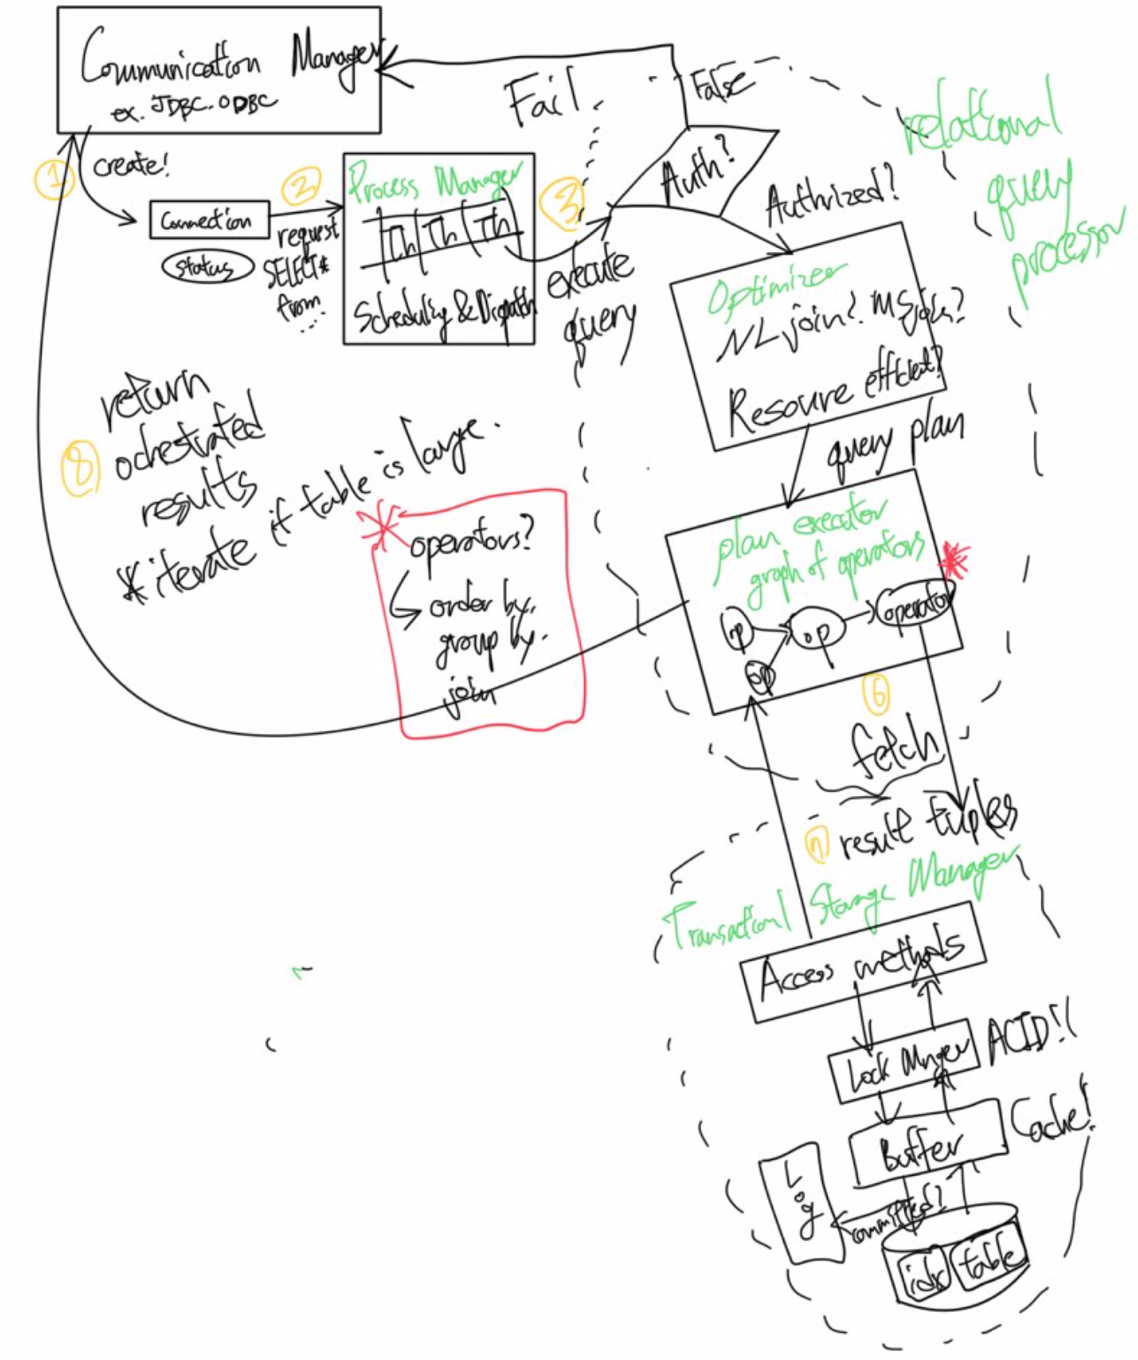 Communication Manager
ex. JDBC. ODBC
① create!
Connection
Status
②
request
SELECT*
from
...
Process Manager
Th Th Th
Scheduling & Dispath
③
execute
query
Fail.
False
Auth?
Authrized?
relational
query
processor
Optimizer
NL join? MSjoin?
Resoure efficient?
query plan
plan executor
graph of operators
*
op
op
operator
op
⑥
fetch
return
⑧ ochestrated
results
* iterate if table is large.
* operators?
order by,
group by.
join
result tuples
Transactionl Storage Manager
Access methods
Lock Manger
ACID!!
Buffer
Cache!
Log
committed?
idx
table